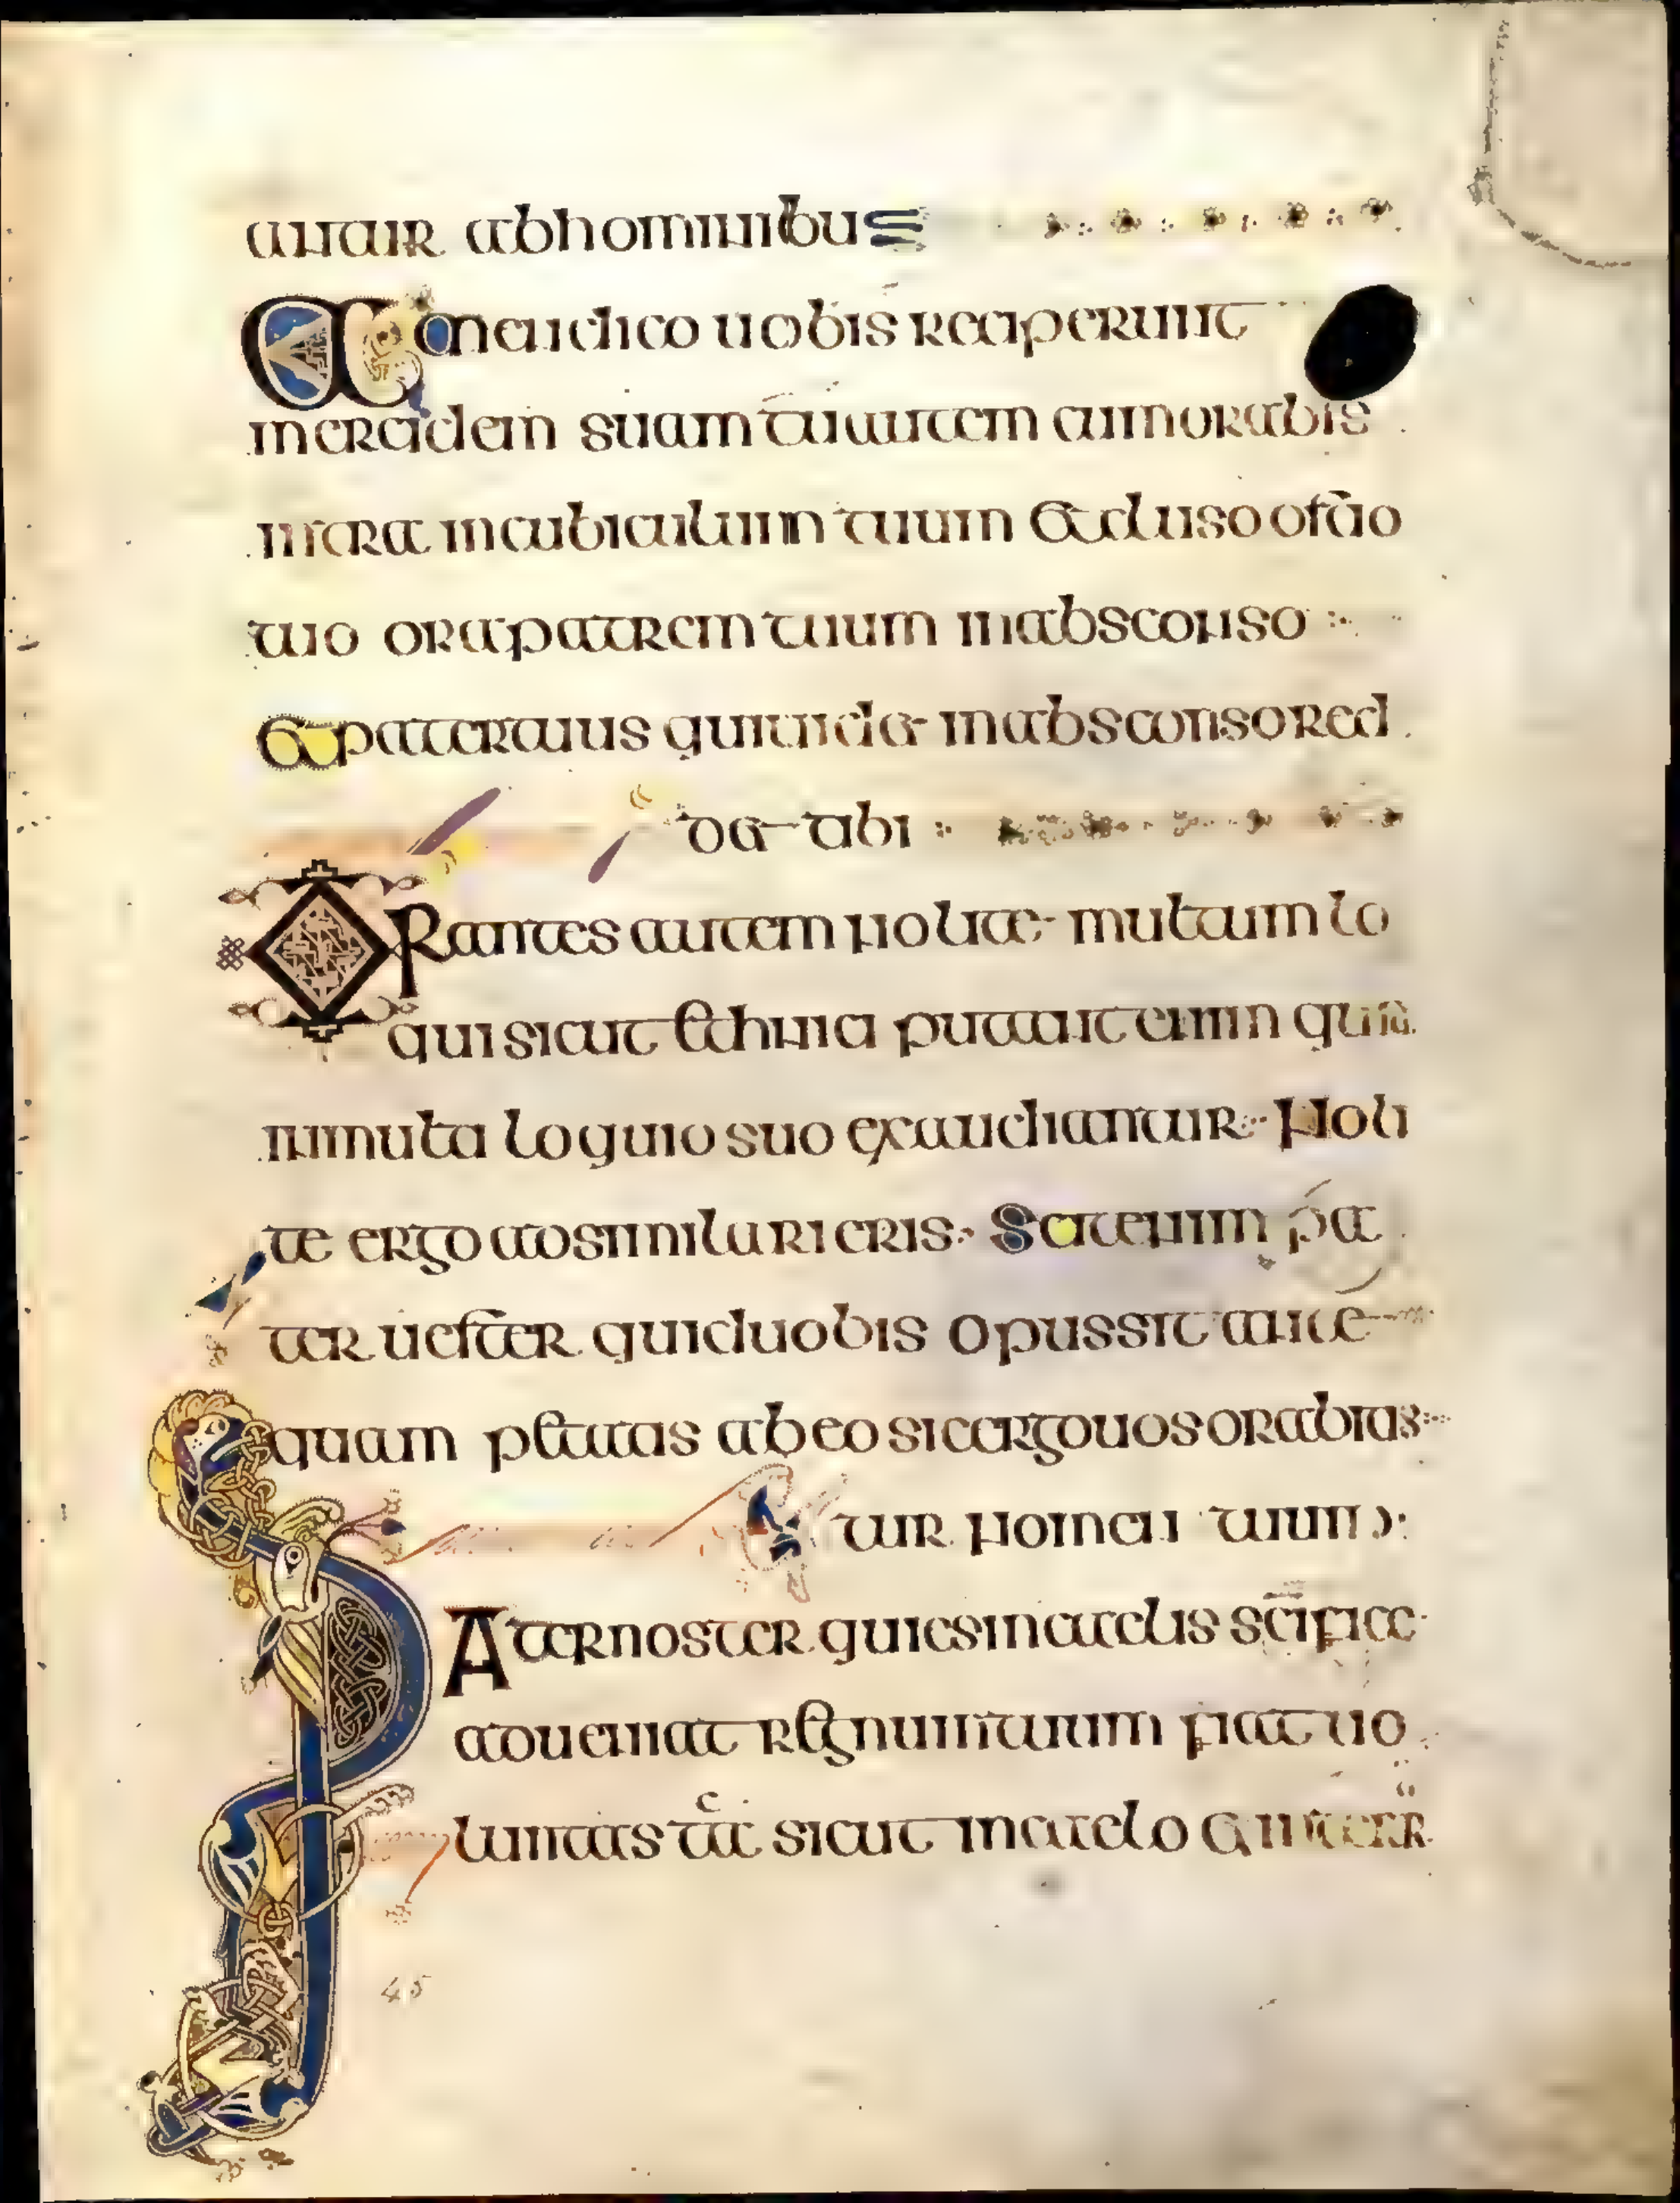 antur ab hominibus
Amen dico uobis reciperunt
mercidem suam tu autem cum orabis
intra in cubiculum tuum et cluso ostio
tuo ora patrem tuum in absconso
et pater tuus qui uidet in absconso red
det tibi
Orantes autem nolite multum lo
qui sicut ethnici putant enim quia
in multi loquio suo exaudiantur Noli
te ergo adsimilari eris Scit enim pa
ter uester quid uobis opus sit ante
quam petatis ab eo sic ergo uos orabitis
tur nomen tuum
Pater noster qui es in caelis scifice
adueniat regnum tuum fiat uo
luntas tā sicut in caelo et in terr
45